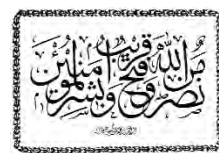 نصر من الله وفتح قريب وبشر المؤمنين